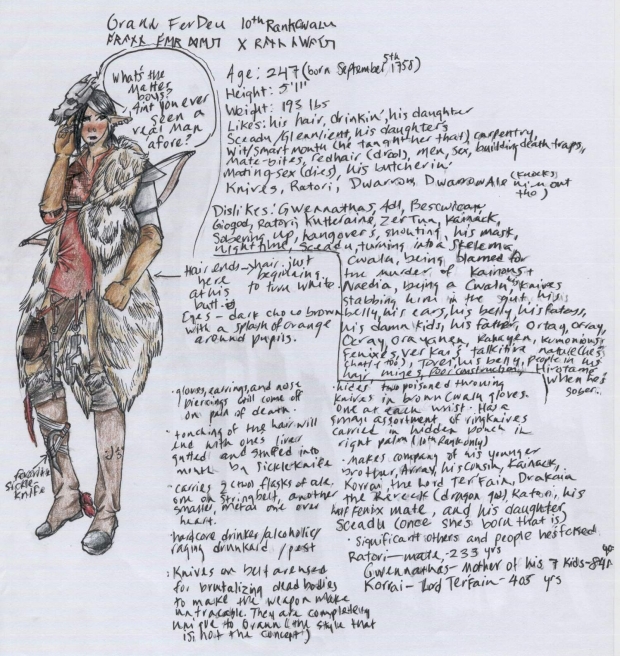 Grann FerDeu 10th RankCwalu
What's the
Matter
boys?
Aint you ever
seen a
real man
afore?
Age: 247 (born September 5th 1758)
Height: 5'11"
Weight: 193 lbs
Likes: his hair, drinkin', his daughter
Sceadu/Gleanlient, his daughter's
wit/smart mouth (he taught her that) carpentry,
Mate-bites, redhair (drools), men, sex, building death traps,
Mating-sex (dies), his butcherin'
Knives, Ratori, Dwarrow, DwarrowAle (knocks
him out
tho)
Dislikes: Gwennathas, Adl,
Giogod, Ratori, Kutheraine, ZerTun, Kainack,
Sobering up, hangovers, shouting, his mask,
nighttime, Sceadu, turning into a
Cwalu, being blamed for
the murder of Kainous +
Naedia, being a Cwalu, his knives
stabbing him in the gut, his
belly, his ears, his belly, his fatass,
his damn kids, his father, Ortag, Orag,
Oerag, Oraganan, Kahagen, Kumonious
Fenixes, Verkai's talkitive nature (he's
, Torei, his being, people in his
hair, mirges, poor construction, Hirotame
when he's
sober..
Hair ends → hair just
here beginning
at his to turn white.
butt.
Eyes - dark choco brown
with a splash of orange
around pupils.
· gloves, earrings, and nose
piercings will come off
on pain of death.
· touching of the hair will
end with ones liver
gutted and stuffed into
mouth by sickleknife
· carries 2 cwol flasks of ale.
one on stringbelt, another
smaller, metal one over
heart.
· hardcore drinker/alcoholic/
raging drunkard/pest
· Knives on belt are used
for brutalizing dead bodies
to make the weapon make
untraceable. They are completely
unique to Grann (the style that
is, not the concept)
favorite
sickle
knife
· hides two poisoned throwing
knives in brown Cwalu gloves.
one at each wrist. Has a
small assortment of ringknives
carried in hidden pouch in
right palm (10th Rank only)
· Makes company of his younger
brother, Array, his cousin, Kainack,
Korrai, the Lord TerFain, Drakaia
the Rereck (dragon god) Katari, his
half Fenix mate, and his daughter
Sceadu (once she's born that is)
· Significant others and people he's
Ratori — mate, 233 yrs
Gwennathas - Mother of his 7 kids - 84 yrs
Korrai - Lord TerFain - 403 yrs